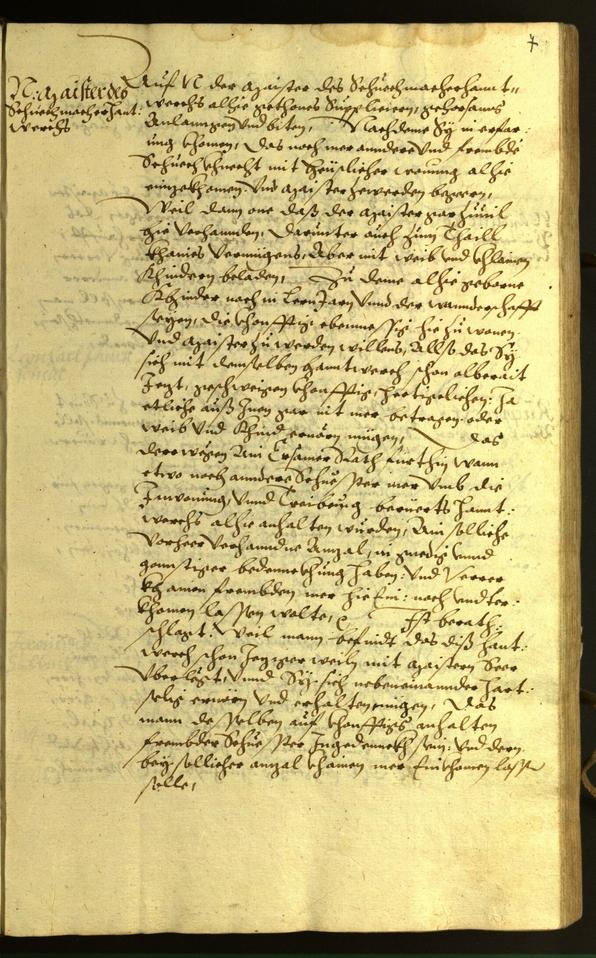 7
N: Maister des
Schuechmacherhant:
werchs
Auf N der Maister des Schuechmacherhant„
werchs alhie gethones Supplicieren, gehorsams
Anlanngen und biten, Nachdeme Sy in erfar„
ung khomen, das noch mer anndere und frembde
Schuechkhnecht mit heuslicher wonung alhie
einzekhomen und Maister zewerden begeren,
Weil dann one das der Maister gar zuuil
hie verhannden, darunter auch zum Thaill
khaines vermugens, Aber mit weib und khlainen
Khindern beladen, Zu deme alhie geborne
Khinder noch in Lern Jarn unnd der wannderschafft
seyen, die khonfftig ebenmessig hie zu wonen
und Maister zu werden willens, Allso das Sy
sich mit demselben hanntwerch schon alberait
Jezt, geschweigen khonfftig, hartigelichen: Ja
etliche auß Inen gar nit mer betragen oder
weib und Khind ernörn mügen, das
derowegen Ain Ersamer Rath fürthin wann
etwo noch anndere Schuester mer umb die
Inwonung, unnd Treibung berüerts hannt:
werchs alhie anhalten wurden, Ain solliche
vorheer verhanndne Anzal, in gnedig unnd
gonnstiger bedennckhung haben: und verrer
khainen frembden mer hie ein: noch undter:
khomen lassen wolte, Ist berath:
schlagt: Weil mann befindt das diß hant:
werch schon Jezger weiln mit Maistern Seer
uberlegt, unnd Sy sich nebeneinannder hart:
selig ernörn und erhalten mügen, Das
mann desselben auf khonfftigs anhalten
frembder Schuester Ingedennckh sein: und dern
bey sollicher anzal khainen mer Einkhomen lassen
solle,